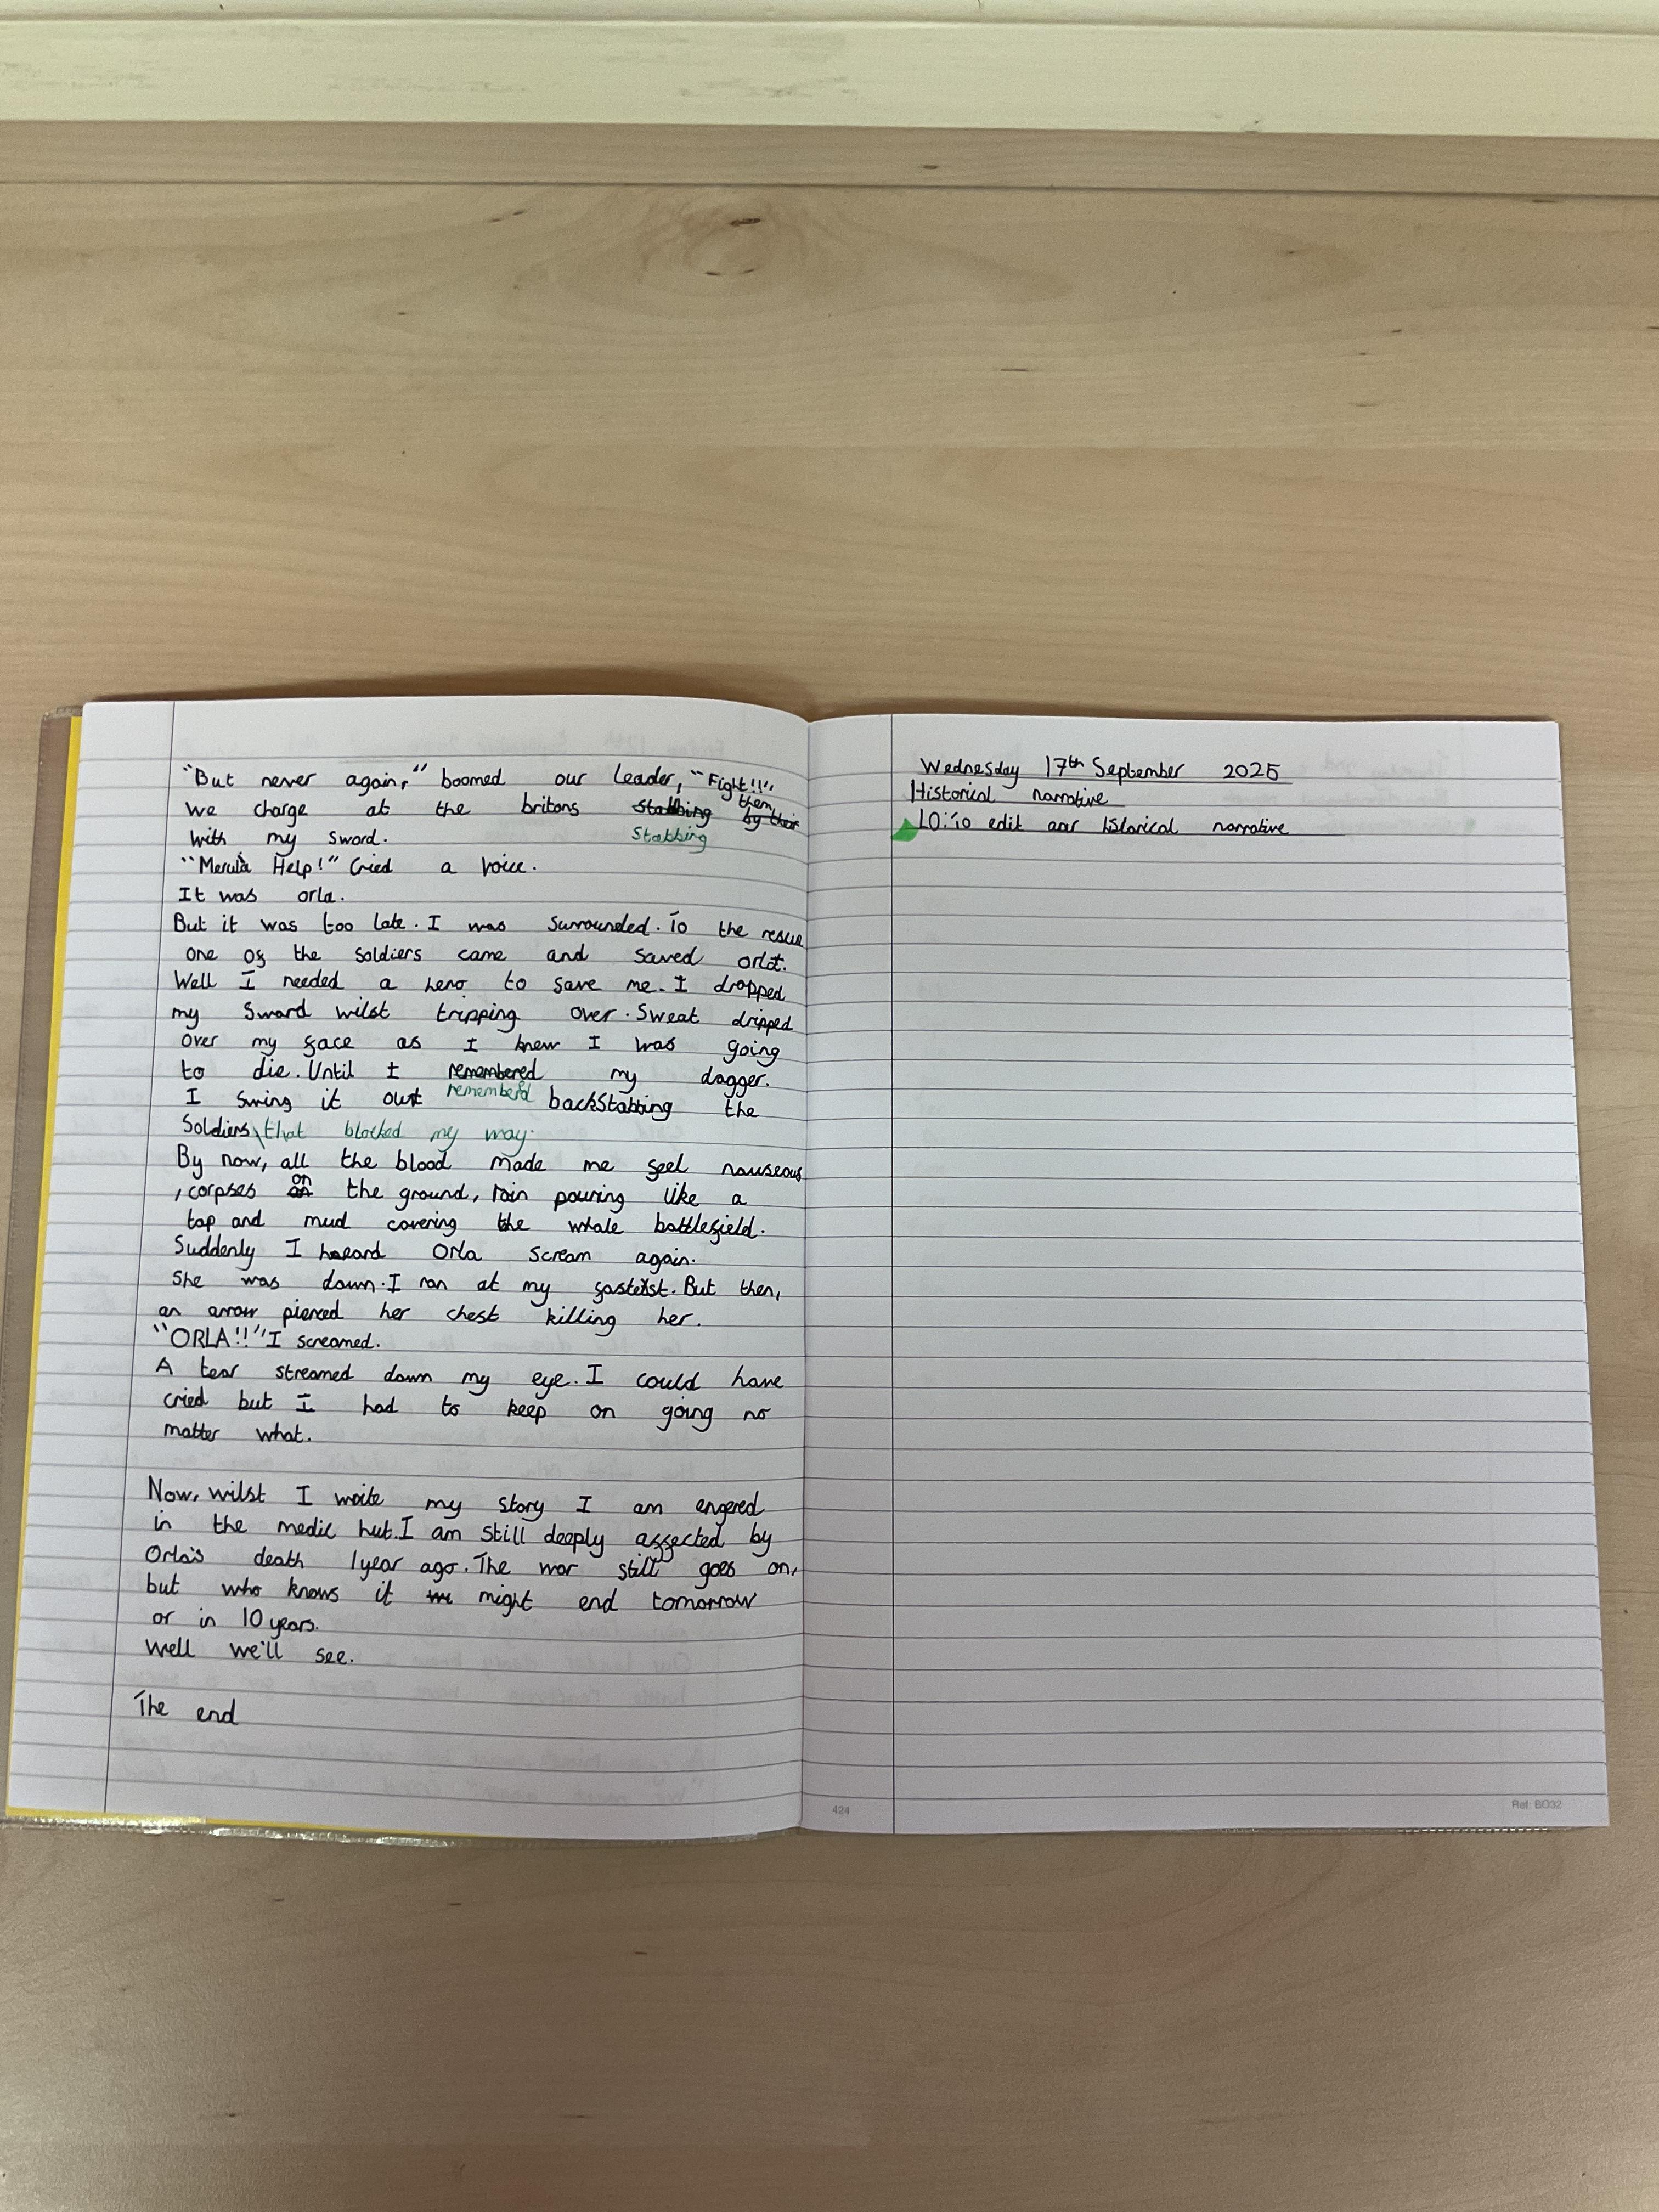 "But never again," boomed our leader, "Fight!!"
we charge at the britons stabbing them
with my sword. Stabbing
"Merula Help!" Cried a voice.
It was orla.
But it was too late. I was surrounded. To the rescue
one of the soldiers came and saved orla.
Well I needed a hero to save me. I dropped
my sword wilst tripping over. Sweat dripped
over my face as I knew I was going
to die. Until I remembered my dagger.
I swing it out rememberd backstabbing the
soldiers that blocked my way.
By now, all the blood made me feel nauseous
, corpses on the ground, rain pouring like a
tap and mud covering the whole battlefield.
Suddenly I heard Orla scream again.
She was down. I ran at my fastest. But then,
an arrow pierced her chest killing her.
"ORLA!!" I screamed.
A tear streamed down my eye. I could have
cried but I had to keep on going no
matter what.
Now, wilst I write my story I am engered
in the medic hut. I am still deeply affected by
Orla's death 1 year ago. The war still goes on,
but who knows it might end tomorrow
or in 10 years.
Well we'll see.
The end
424
Wednesday 17th September 2025
Historical narrative
LO: To edit our historical narrative
Ref: BD32